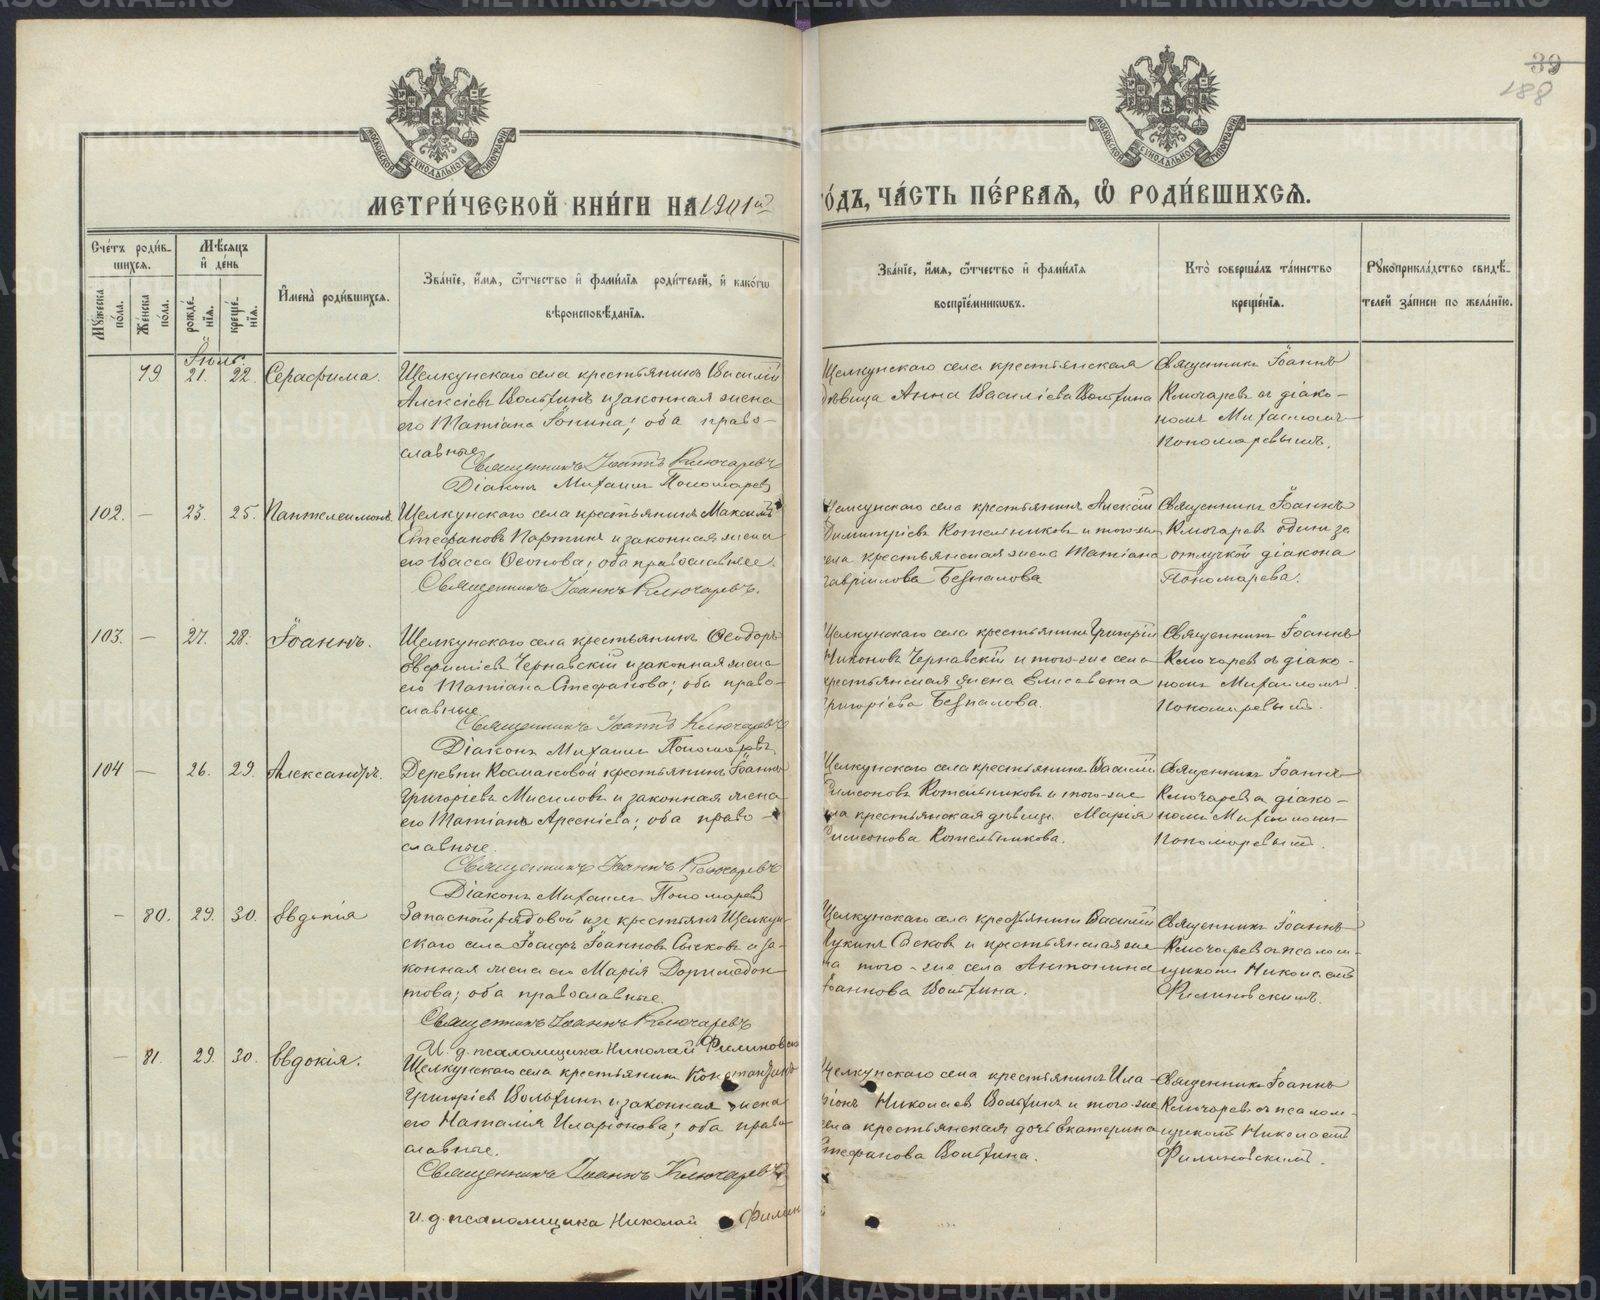 39
188
МЕТРИ́ЧЕСКОЙ КНИ́ГИ НА 1901й
ГО́ДЪ, ЧА́СТЬ ПЕ́РВАЯ, Ѿ РОДИ́ВШИХСЯ.
Сче́тъ роди́в-
шихся.
Мѣ́сяцъ
и҆ де́нь
Му́жеска по́ла.
Же́нска по́ла.
рожде́нїя.
креще́нїя.
И҆мена̀ роди́вшихся.
Зва́нїе, и҆́мя, ѻ҆́тчество и҆ фами́лїя роди́телей, и҆ како́гѡ
вѣроисповѣ́данїя.
Зва́нїе, и҆́мя, ѻ҆́тчество и҆ фами́лїя
воспрїе́мникѡвъ.
Кто̀ соверша́лъ та́инство
креще́нїя.
Рꙋкоприкла́дство свидѣ́-
телей за́писи по жела́нїю.
Іюль.
79. 21. 22. Серафима.
Щелкунскаго села крестьянинъ Василій
Алексіевъ Волъхинъ и законная жена
его Татіана Іонина; оба право-
славные.
Священникъ Іоаннъ Ключаревъ
Діаконъ Михаилъ Пономаревъ
Щелкунскаго села крестьянская
дѣвица Анна Василіева Волъхина
Священникъ Іоаннъ
Ключаревъ съ діако-
номъ Михаиломъ
Пономаревымъ.
102. — 23. 25. Пантелеимонъ.
Щелкунскаго села крестьянинъ Максимъ
Стефановъ Партинъ и законная жена
его Васса Ѳеонова; оба православные.
Священникъ Іоаннъ Ключаревъ.
Щелкунскаго села крестьянинъ Алексій
Димитріевъ Котельниковъ и того-же
села крестьянская жена Татіана
Гавріилова Безпалова
Священникъ Іоаннъ
Ключаревъ одинъ за
отлучкой діакона
Пономарева.
103. — 27. 28. Іоаннъ.
Щелкунскаго села крестьянинъ Ѳеодоръ
Евфиміевъ Чернавскій и законная жена
его Татіана Стефанова; оба право-
славные.
Священникъ Іоаннъ Ключаревъ
Діаконъ Михаилъ Пономаревъ
Щелкунскаго села крестьянинъ Григорій
Никоновъ Чернавскій и того-же села
крестьянская жена Елисавета
Григоріева Безпалова.
Священникъ Іоаннъ
Ключаревъ съ діако-
номъ Михаиломъ
Пономаревымъ.
104 — 26. 29. Александръ.
Деревни Космаковой крестьянинъ Іоаннъ
Григоріевъ Мисиловъ и законная жена
его Татіана Арсеніева; оба право-
славные.
Священникъ Іоаннъ Ключаревъ
Діаконъ Михаилъ Пономаревъ
Щелкунскаго села крестьянинъ Василій
Симеоновъ Котельниковъ и того-же
села крестьянская дѣвица Марія
Симеонова Котельникова.
Священникъ Іоаннъ
Ключаревъ съ діако-
номъ Михаиломъ
Пономаревымъ.
— 80. 29. 30. Евдокія
Запасной рядовой изъ крестьянъ Щелкун-
скаго села Іосифъ Іоанновъ Сысковъ и за-
конная жена его Марія Доримедон-
това; оба православные.
Священникъ Іоаннъ Ключаревъ
И. д. псаломщика Николай Филиновскій
Щелкунскаго села крестьянинъ Василій
и крестьянская же-
на того-же села Антонина
Іоаннова Волъхина.
Священникъ Іоаннъ
Ключаревъ съ псалом-
щикомъ Николаемъ
Филиновскимъ.
— 81. 29. 30. Евдокія.
Щелкунскаго села крестьянинъ Константинъ
Григоріевъ Волъхинъ и законная жена
его Наталія Иларіонова; оба право-
славные.
Священникъ Іоаннъ Ключаревъ
И. д. псаломщика Николай Филин
Щелкунскаго села крестьянинъ Ила-
ріонъ Николаевъ Волъхинъ и того-же
села крестьянская дочь Екатерина
Стефанова Волъхина.
Священникъ Іоаннъ
Ключаревъ съ псалом-
щикомъ Николаемъ
Филиновскимъ.